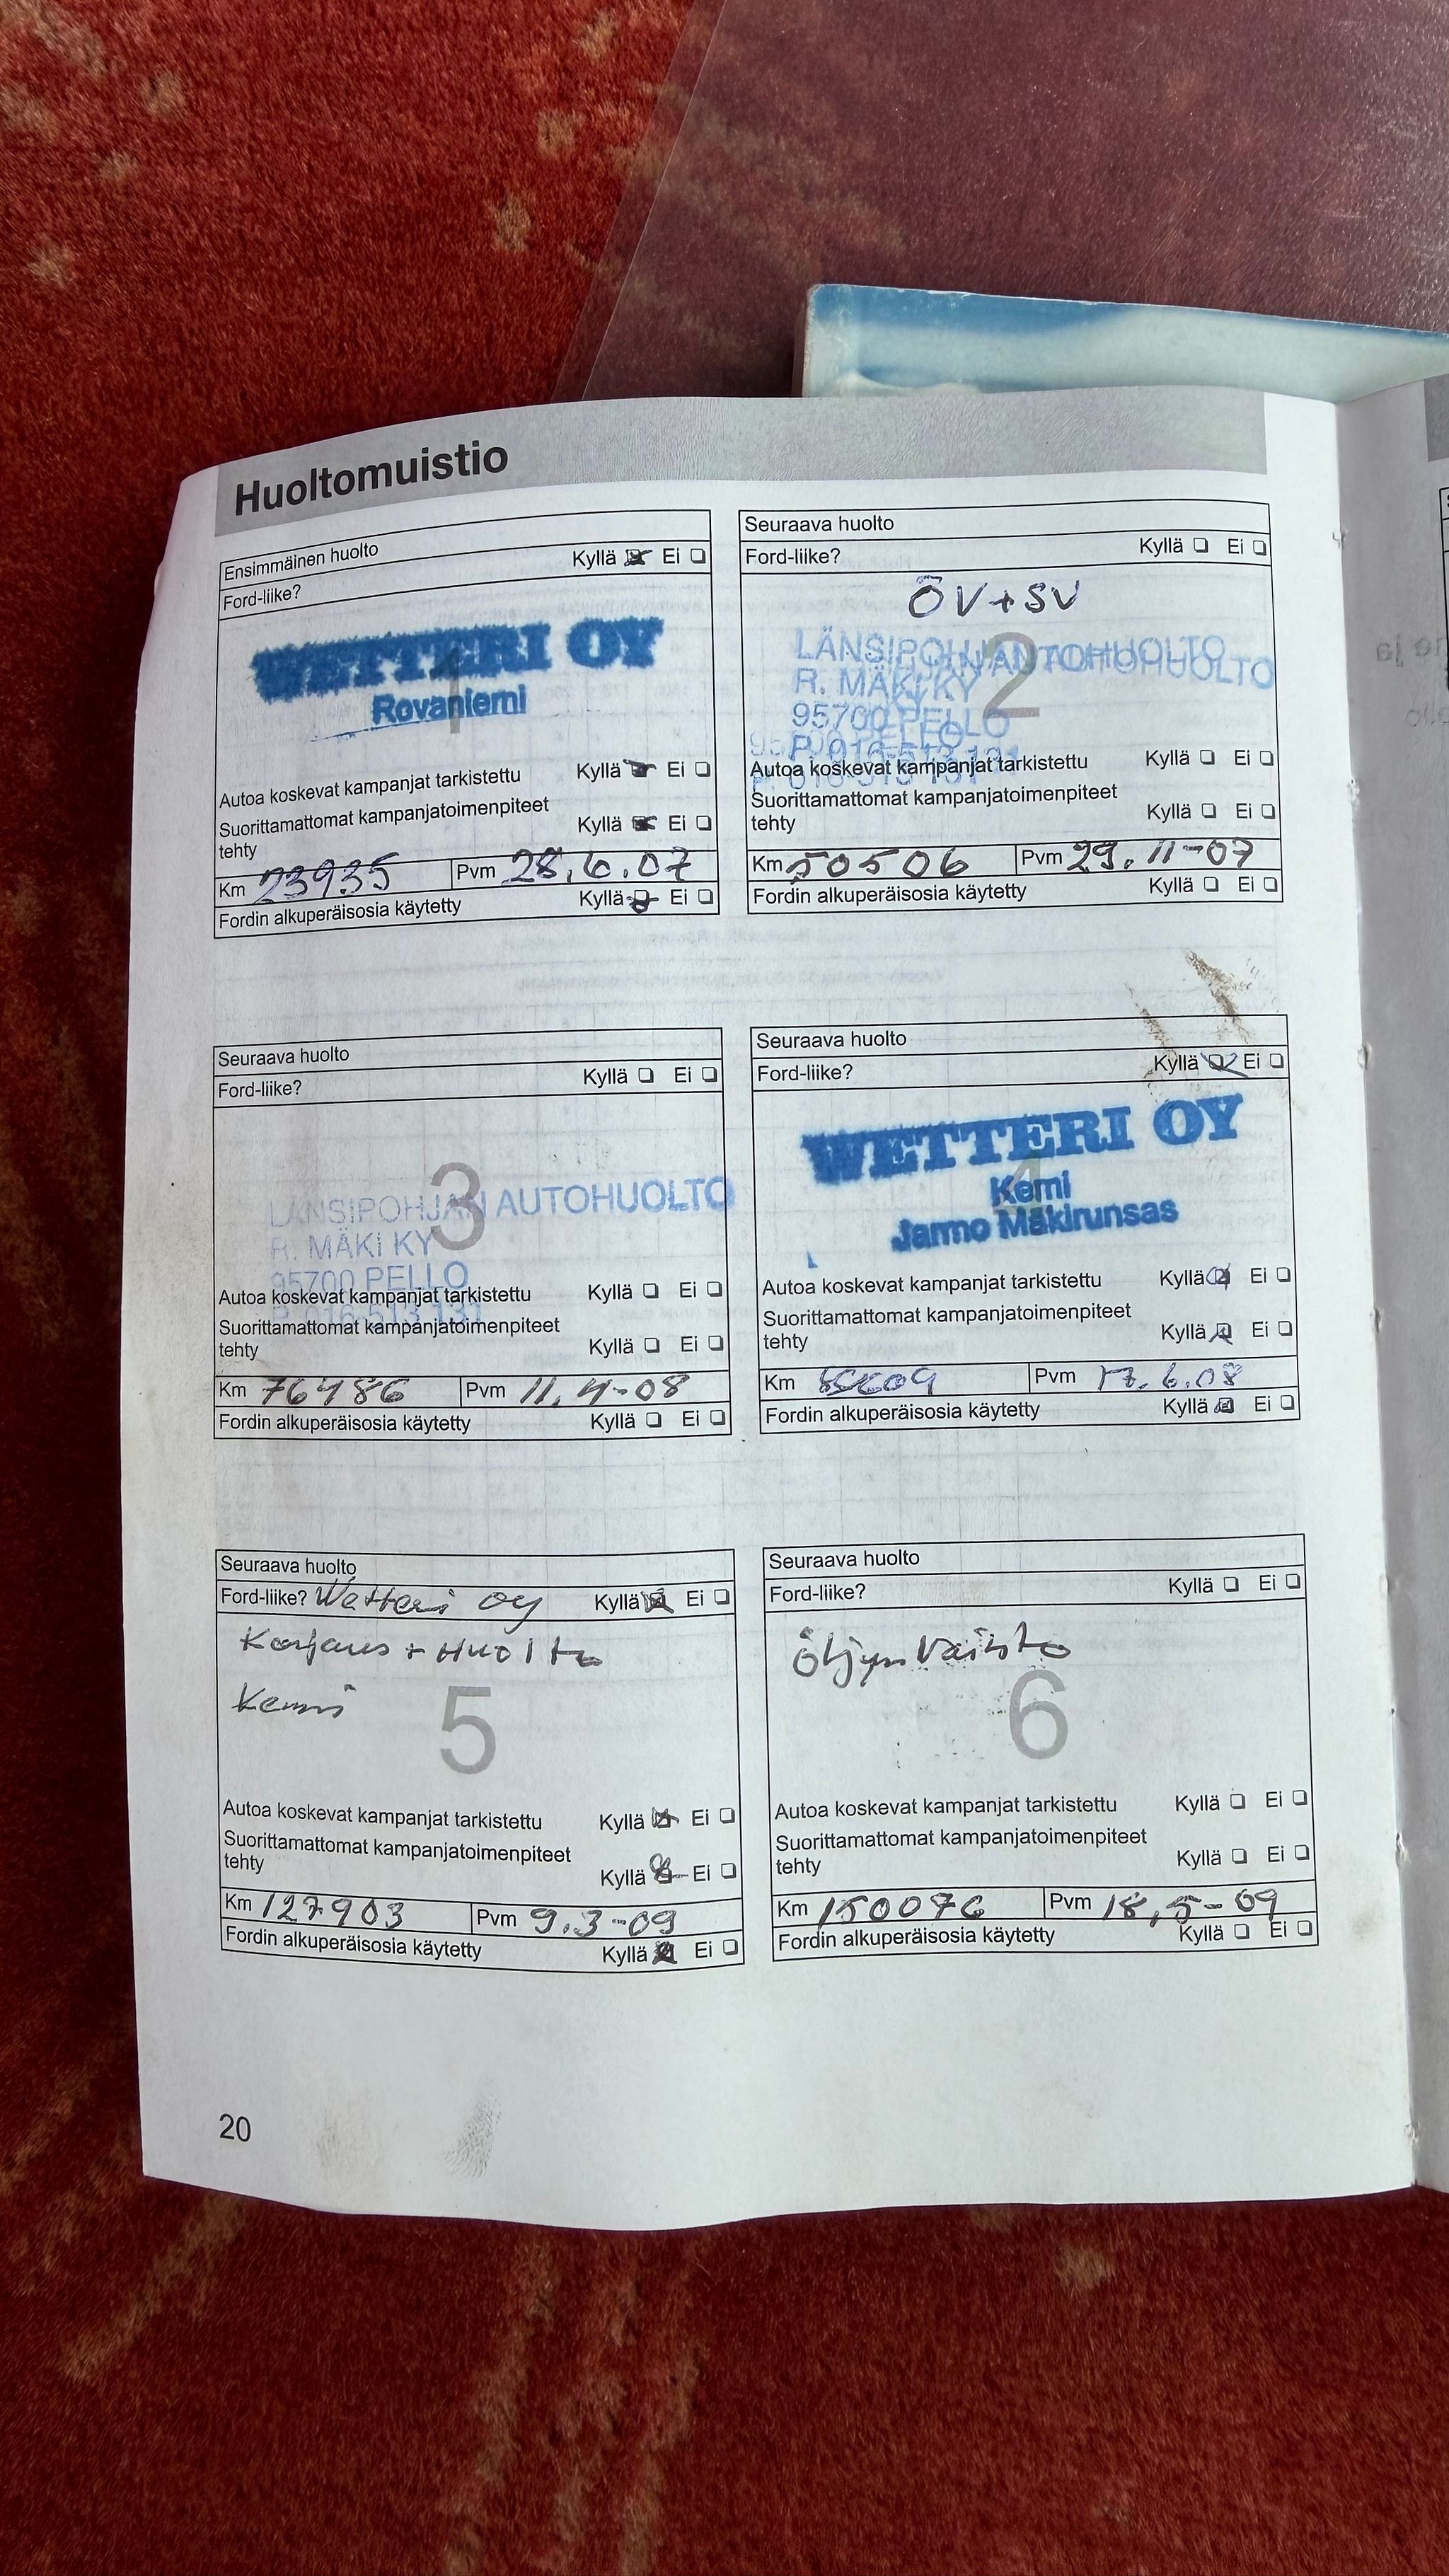 Huoltomuistio
Ensimmäinen huolto
Ford-liike? Kyllä Ei
WETTERI OY
Rovaniemi
1
Autoa koskevat kampanjat tarkistettu Kyllä Ei
Suorittamattomat kampanjatoimenpiteet
tehty Kyllä Ei
Km 23935 Pvm 28.6.07
Fordin alkuperäisosia käytetty Kyllä Ei
Seuraava huolto
Ford-liike? Kyllä Ei
ÖV+SV
2
LÄNSIPOHJAN AUTOHUOLTO
R. MÄKI KY
95700 PELLO
P. 016-513 131
Autoa koskevat kampanjat tarkistettu Kyllä Ei
Suorittamattomat kampanjatoimenpiteet
tehty Kyllä Ei
Km 50506 Pvm 29.11-07
Fordin alkuperäisosia käytetty Kyllä Ei
Seuraava huolto
Ford-liike? Kyllä Ei
3
LÄNSIPOHJAN AUTOHUOLTO
R. MÄKI KY
95700 PELLO
P. 016-513 131
Autoa koskevat kampanjat tarkistettu Kyllä Ei
Suorittamattomat kampanjatoimenpiteet
tehty Kyllä Ei
Km Pvm 11.4-08
Fordin alkuperäisosia käytetty Kyllä Ei
Seuraava huolto
Ford-liike? Kyllä Ei
WETTERI OY
4
Kemi
Jarmo Mäkirunsas
Autoa koskevat kampanjat tarkistettu Kyllä Ei
Suorittamattomat kampanjatoimenpiteet
tehty Kyllä Ei
Km Pvm 17.6.08
Fordin alkuperäisosia käytetty Kyllä Ei
Seuraava huolto
Ford-liike? Wetteri oy Kyllä Ei
Korjaus + Huolto
Kemi
5
Autoa koskevat kampanjat tarkistettu Kyllä Ei
Suorittamattomat kampanjatoimenpiteet
tehty Kyllä Ei
Km 127903 Pvm 9.3-09
Fordin alkuperäisosia käytetty Kyllä Ei
Seuraava huolto
Ford-liike? Kyllä Ei
Öljyn Vaihto
6
Autoa koskevat kampanjat tarkistettu Kyllä Ei
Suorittamattomat kampanjatoimenpiteet
tehty Kyllä Ei
Km 150076 Pvm 18,5-09
Fordin alkuperäisosia käytetty Kyllä Ei
20